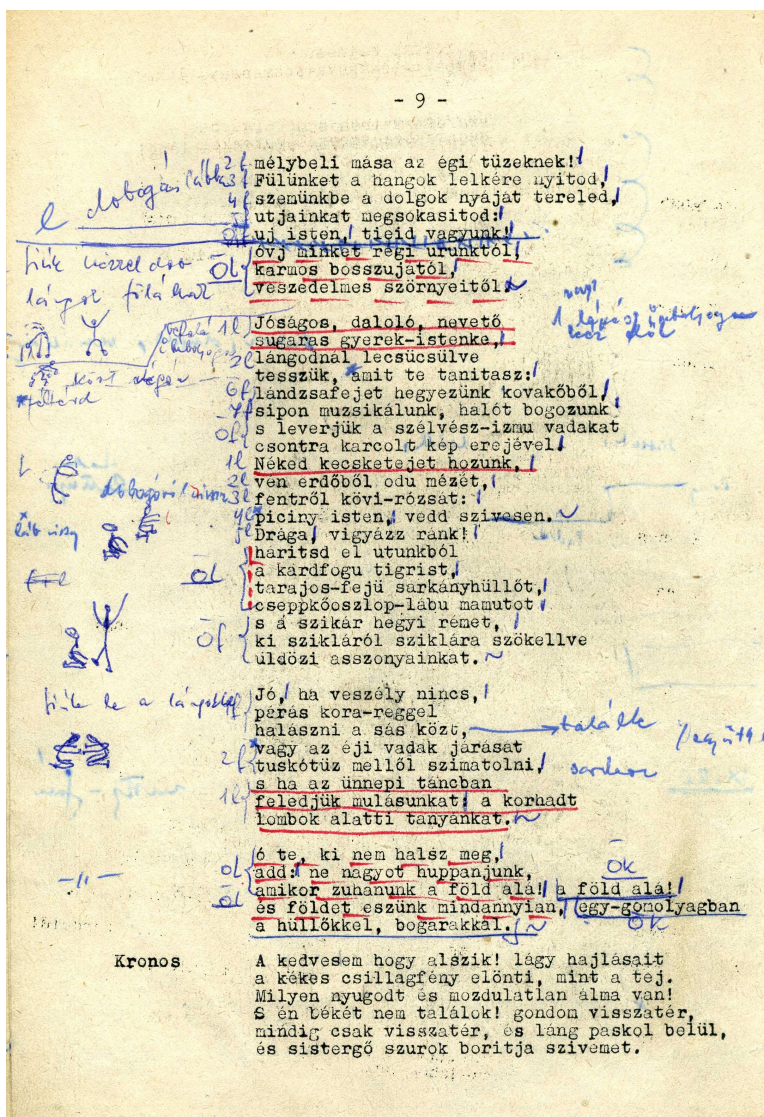 - 9 -
2f mélybeli mása az égi tüzeknek!
3f Fülünket a hangok lelkére nyitod,
4f szemünkbe a dolgok nyáját tereled,
utjainkat megsokasitod:
uj isten, tieid vagyunk!
óvj minket régi urunktól,
ŌL karmos bosszujától,
veszedelmes szörnyeitől.
1l Jóságos, daloló, nevető
sugaras gyerek-istenke,
lángodnál lecsücsülve
tesszük, amit te tanitasz:
6f lándzsafejet hegyezünk kovakőből,
sipon muzsikálunk, halót bogozunk
s leverjük a szélvész-izmu vadakat
csontra karcolt kép erejével.
1l Néked kecsketejet hozunk,
2l ven erdőből odu mézét,
3l fentről kövi-rózsát:
piciny isten, vedd szivesen.
Drága, vigyázz ránk!
háritsd el utunkból
ŌL a kardfogu tigrist,
tarajos-fejü sárkányhüllőt,
cseppkőoszlop-lábu mamutot
s a szikár hegyi rémet,
Ōf ki szikláról sziklára szökellve
üldözi asszonyainkat.
Jó, ha veszély nincs,
párás kora-reggel
halászni a sás közt,
vagy az éji vadak járását
2f tuskótüz mellől szimatolni,
s ha az ünnepi táncban
1l feledjük mulásunkat, a korhadt
lombok alatti tanyánkat.
ó te, ki nem halsz meg,
add: ne nagyot huppanjunk, ŌK
amikor zuhanunk a föld alá! a föld alá!
és földet eszünk mindannyian, egy-gomolyagban
a hüllőkkel, bogarakkal. ŌK
Kronos A kedvesem hogy alszik! lágy hajlásait
a kékes csillagfény elönti, mint a tej.
Milyen nyugodt és mozdulatlan álma van!
S én békét nem találok! gondom visszatér,
mindig csak visszatér, és láng paskol belül,
és sistergő szurok boritja szivemet.